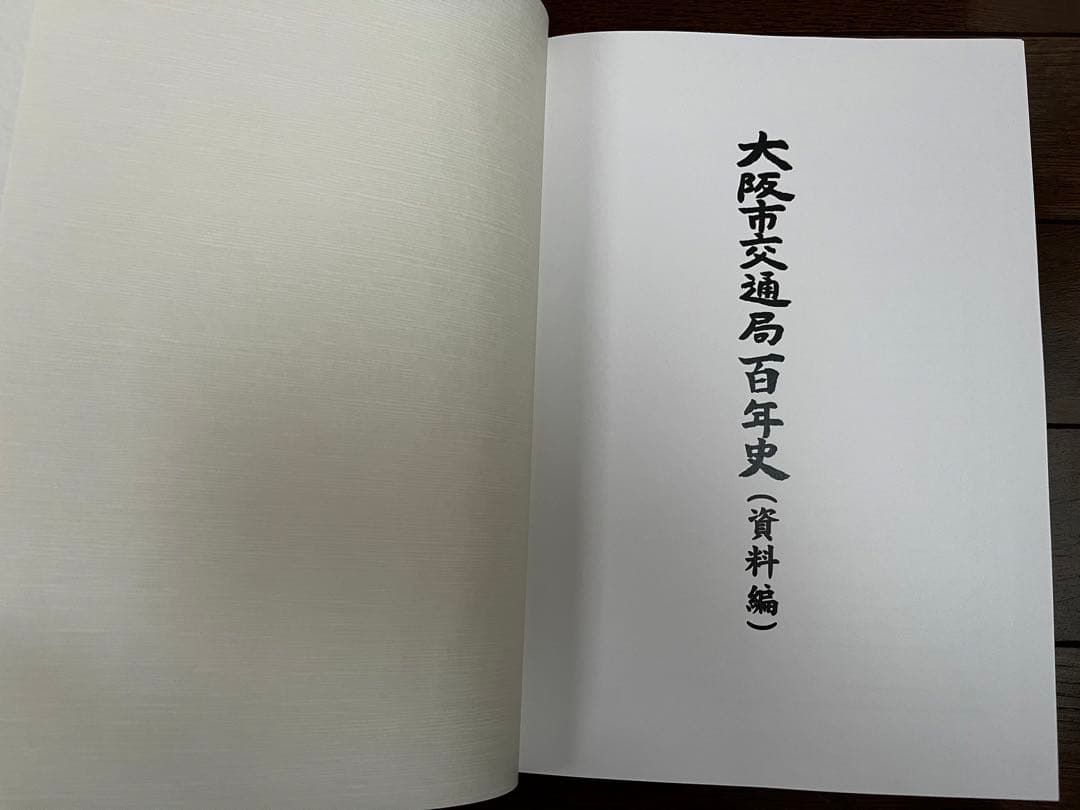 大阪市交通局百年史(資料編)